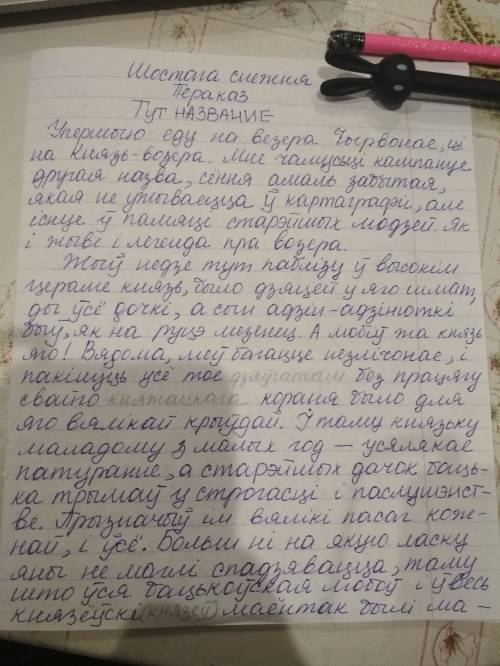 Шостага снежня
Пераказ
Тут НАЗВАНИЕ
Упершыню еду на возера Чырвонае, ці
на Князь-возера. Мне чамусьці кампануе
другая назва, сёння амаль забытая,
якая не ўжываецца ў картаграфіі, але
існуе ў памяці старэйшых людзей. Як
і жыве і легенда пра возера.
Жыў недзе тут паблізу ў высокім
цераме князь, было дзяцей у яго шмат,
ды ўсё дочкі, а сын адзін-адзінюткі
быў, як на руцэ мезенец. А любіў жа князь
яго! Вядома, меў багацце незлічонае, і
пакінуць усё тое дзяўчатам без працягу
свайго княжацкага кораня было для
яго вялікай крыўдай. І таму князьку
маладому з малых год — усялякае
патуранне, а старэйшых дачок баць-
ка трымаў у строгасці і паслушэнст-
ве. Прызначыў ім вялікі пасаг кож-
най, і ўсё. Больш ні на якую ласку
яны не маглі спадзявацца, таму
што ўся бацькоўская любоў і ўвесь
князеўскі (князеў) маёнтак былі ма-